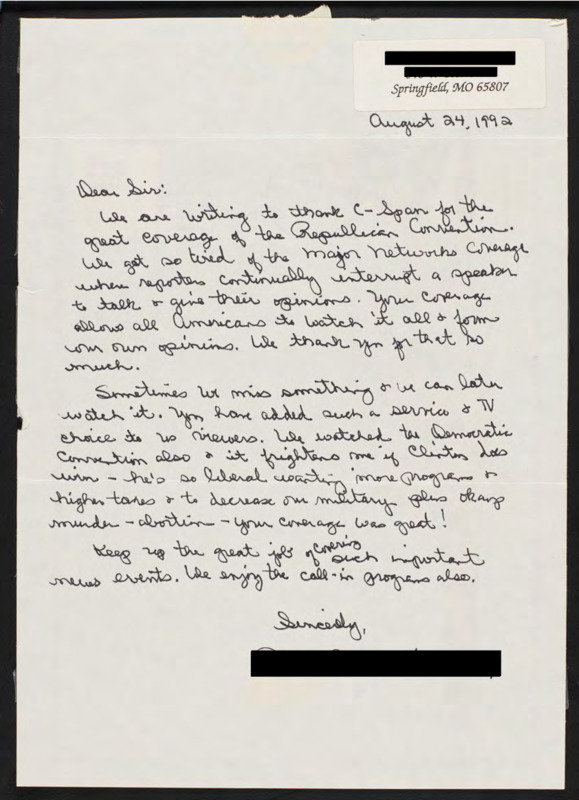 Springfield, MO 65807
August 24, 1992
Dear Sir:
We are writing to thank C-Span for the
great coverage of the Republican Convention.
We get so tired of the major networks coverage
where reporters continually interrupt a speaker
to talk & give their opinions. Your coverage
allows all Americans to watch it all & form
our own opinions. We thank you for that so
much.
Sometimes we miss something & we can later
watch it. You have added such a service & TV
choice to us viewers. We watched the Democratic
Convention also & it frightens me if Clinton does
win - he's so liberal wanting more programs &
higher taxes & to decrease our military plus okays
murder - abortion - your coverage was great!
Keep up the great job of covering such important
news events. We enjoy the call-in programs also.
Sincerely,